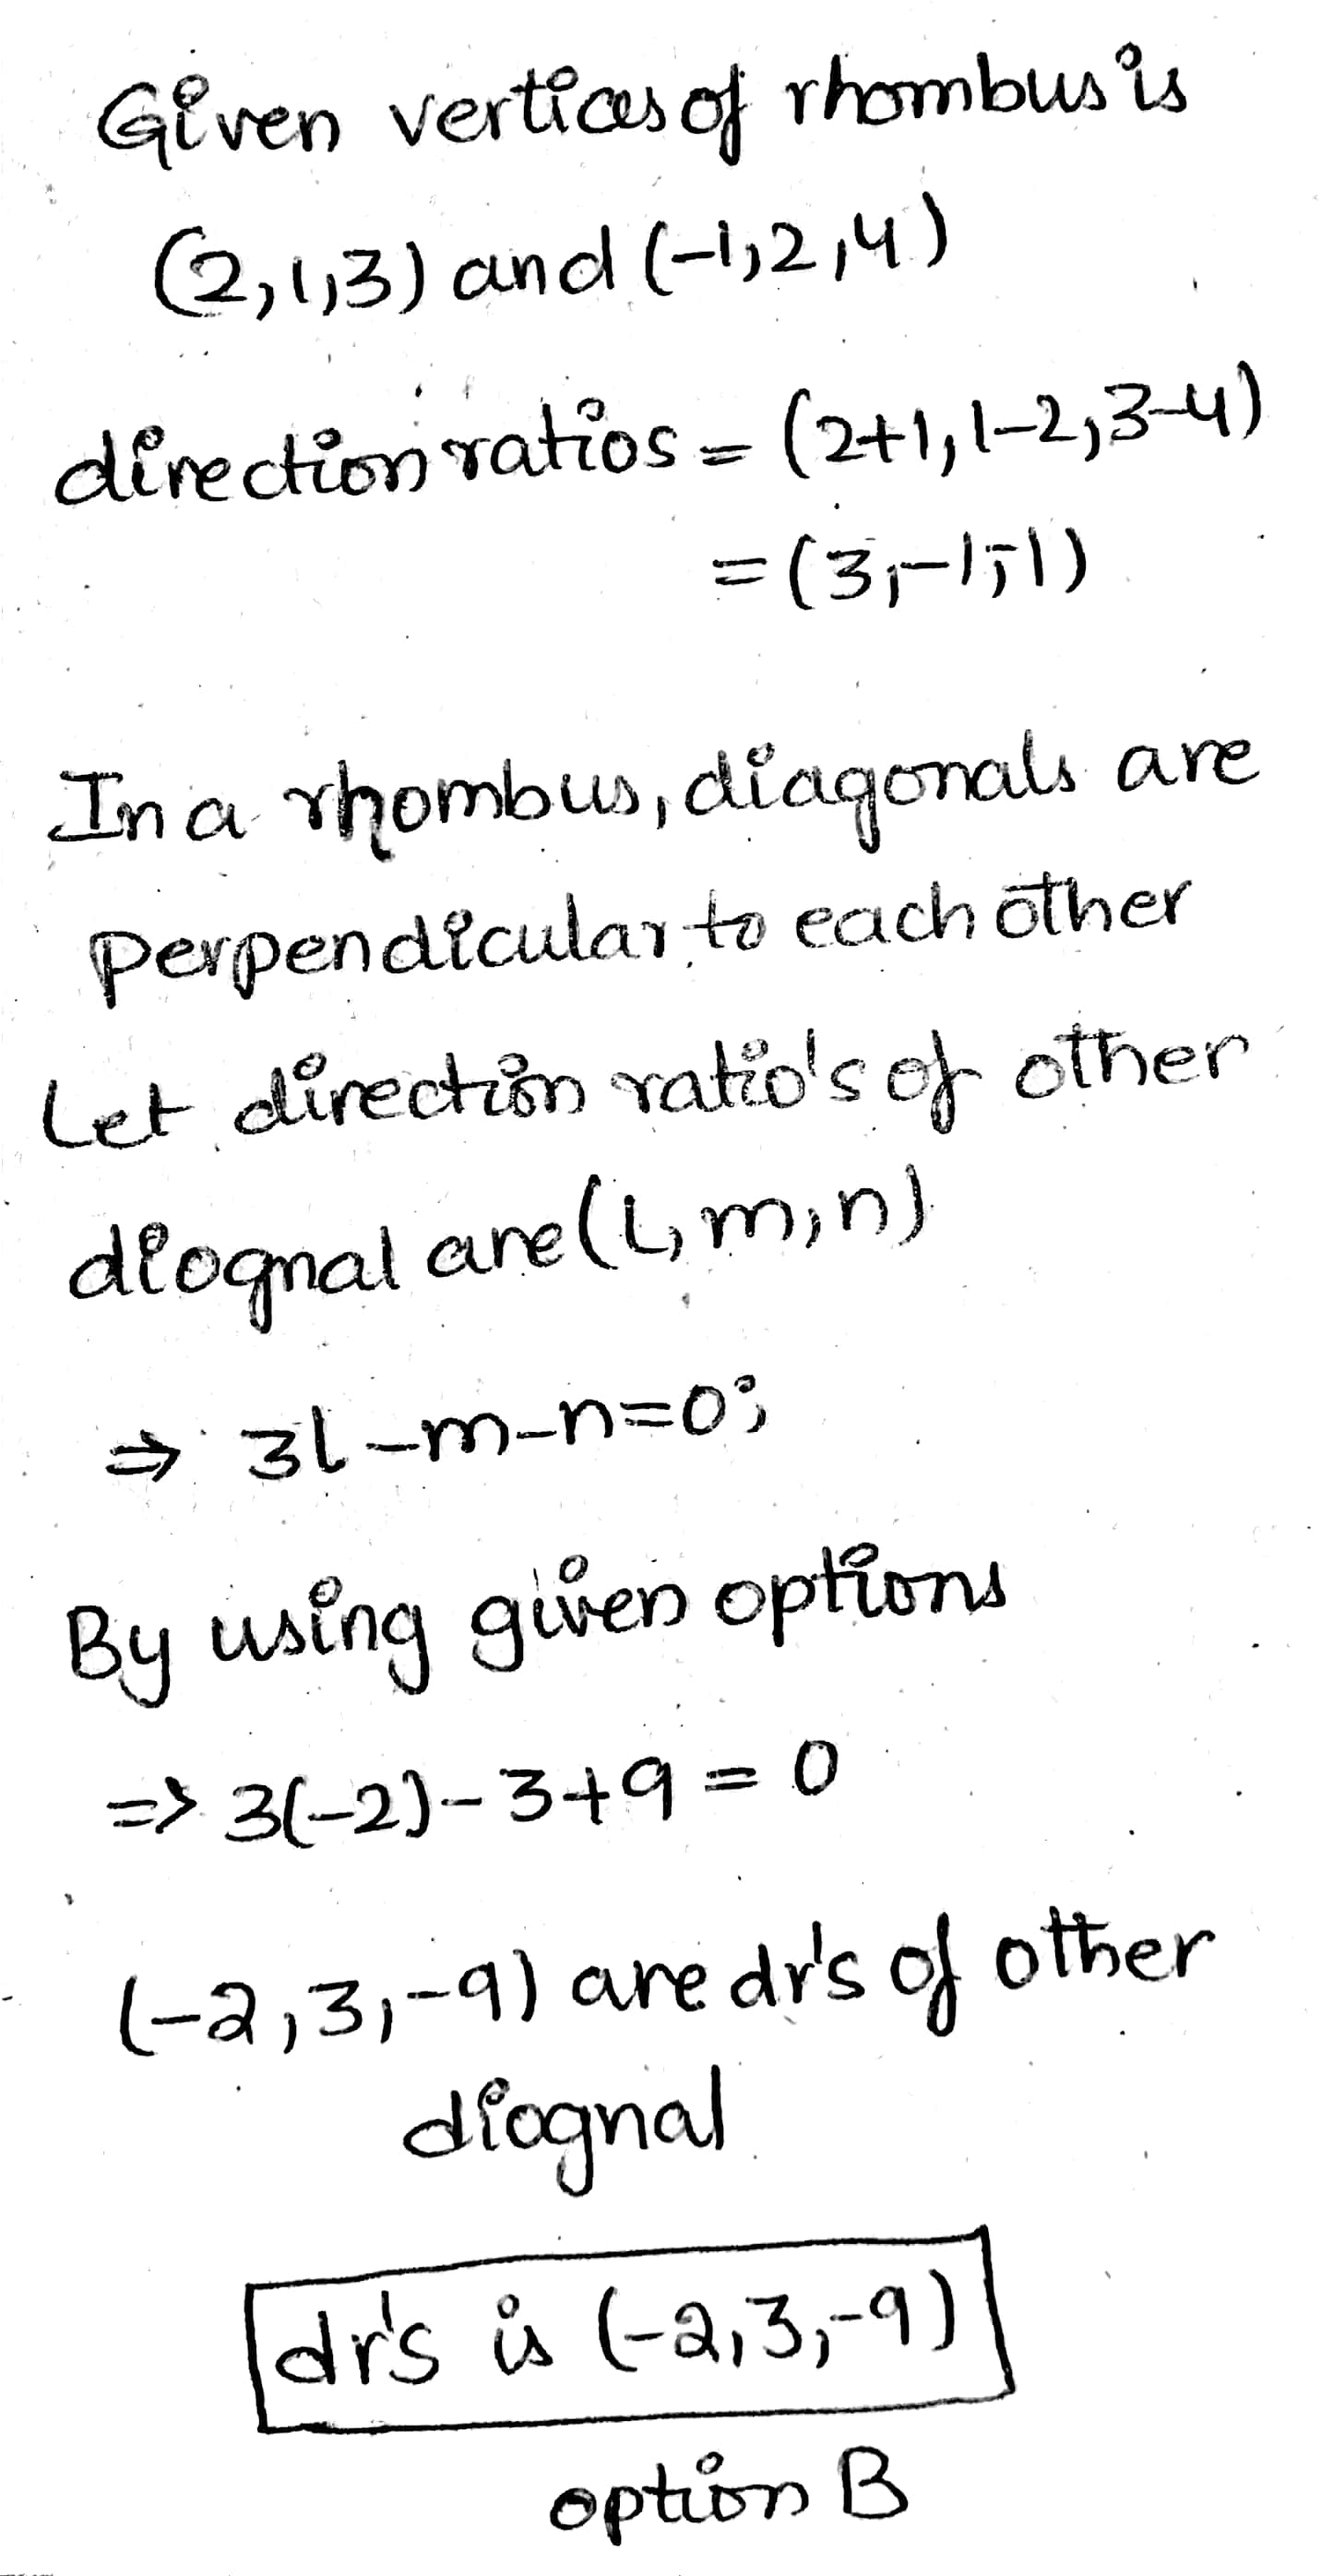 Given vertices of rhombus is
(2,1,3) and (-1,2,4)
direction ratios = (2+1, 1-2, 3-4)
= (3,-1,-1)
In a rhombus, diagonals are
perpendicular to each other
Let direction ratio's of other
diognal are (l, m, n)
⇒ 3l - m - n = 0;
By using given options
=> 3(-2) - 3 + 9 = 0
(-2, 3, -9) are dr's of other
diognal
dr's is (-2, 3, -9)
option B